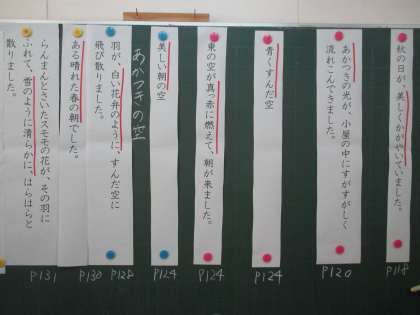 秋の日が、美しくかがやいていました。
P118
あかつきの光が、小屋の中にすがすがしく
流れこんできました。
P120
青くすんだ空
P124
東の空が真っ赤に燃えて、朝が来ました。
P124
美しい朝の空
P124
あかつきの空
羽が、白い花弁のように、すんだ空に
飛び散りました。
P128
ある晴れた春の朝でした。
P130
らんまんとさいたスモモの花が、その羽に
ふれて、雪のように清らかに、はらはらと
散りました。
P131